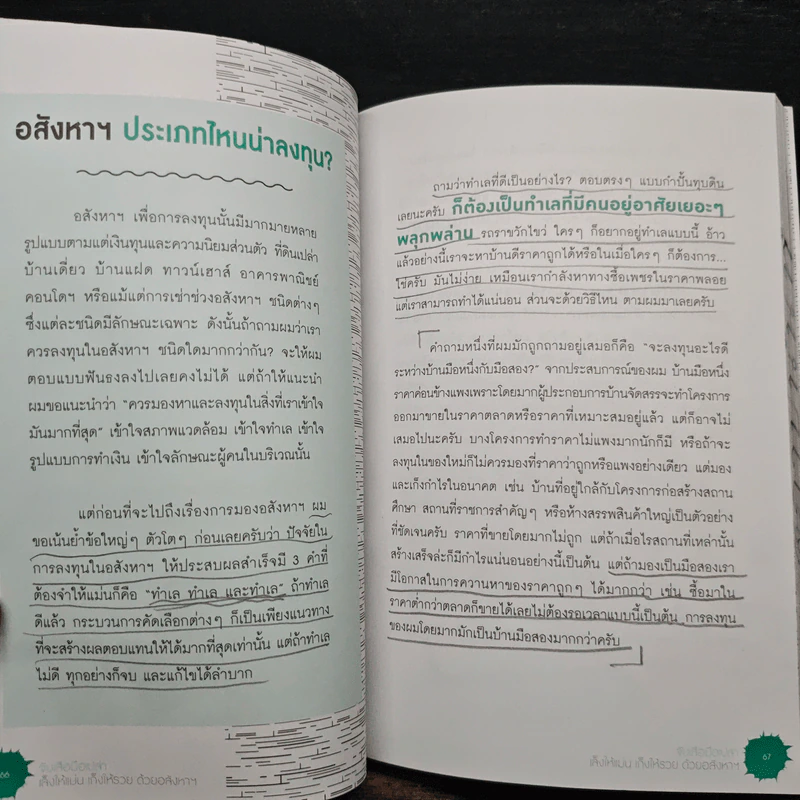 อสังหาฯ ประเภทไหนน่าลงทุน?
อสังหาฯ เพื่อการลงทุนนั้นมีมากมายหลาย
รูปแบบตามแต่เงินทุนและความนิยมส่วนตัว ที่ดินเปล่า
บ้านเดี่ยว บ้านแฝด ทาวน์เฮาส์ อาคารพาณิชย์
คอนโดฯ หรือแม้แต่การเช่าช่วงอสังหาฯ ชนิดต่างๆ
ซึ่งแต่ละชนิดมีลักษณะเฉพาะ ดังนั้นถ้าถามผมว่าเรา
ควรลงทุนในอสังหาฯ ชนิดใดมากกว่ากัน? จะให้ผม
ตอบแบบฟันธงลงไปเลยคงไม่ได้ แต่ถ้าให้แนะนำ
ผมขอแนะนำว่า "ควรมองหาและลงทุนในสิ่งที่เราเข้าใจ
มันมากที่สุด" เข้าใจสภาพแวดล้อม เข้าใจทำเล เข้าใจ
รูปแบบการทำเงิน เข้าใจลักษณะผู้คนในบริเวณนั้น
แต่ก่อนที่จะไปถึงเรื่องการมองอสังหาฯ ผม
ขอเน้นย้ำข้อใหญ่ๆ ตัวโตๆ ก่อนเลยครับว่า ปัจจัยใน
การลงทุนในอสังหาฯ ให้ประสบผลสำเร็จมี 3 คำที่
ต้องจำให้แม่นก็คือ "ทำเล ทำเล และทำเล" ถ้าทำเล
ดีแล้ว กระบวนการคัดเลือกต่างๆ ก็เป็นเพียงแนวทาง
ที่จะสร้างผลตอบแทนให้ได้มากที่สุดเท่านั้น แต่ถ้าทำเล
ไม่ดี ทุกอย่างก็จบ และแก้ไขได้ลำบาก
66
จับเสือมือเปล่า
เล็งให้แม่น เก็งให้รวย ด้วยอสังหาฯ
ถามว่าทำเลที่ดีเป็นอย่างไร? ตอบตรงๆ แบบกำปั้นทุบดิน
เลยนะครับ ก็ต้องเป็นทำเลที่มีคนอยู่อาศัยเยอะๆ
พลุกพล่าน รถราขวักไขว่ ใครๆ ก็อยากอยู่ทำเลแบบนี้ อ้าว
แล้วอย่างนี้เราจะหาบ้านดีราคาถูกได้หรือในเมื่อใครๆ ก็ต้องการ...
ใช่ครับ มันไม่ง่าย เหมือนเรากำลังหาทางซื้อเพชรในราคาพลอย
แต่เราสามารถทำได้แน่นอน ส่วนจะด้วยวิธีไหน ตามผมมาเลยครับ
คำถามหนึ่งที่ผมมักถูกถามอยู่เสมอก็คือ "จะลงทุนอะไรดี
ระหว่างบ้านมือหนึ่งกับมือสอง?" จากประสบการณ์ของผม บ้านมือหนึ่ง
ราคาค่อนข้างแพงเพราะโดยมากผู้ประกอบการบ้านจัดสรรจะทำโครงการ
ออกมาขายในราคาตลาดหรือราคาที่เหมาะสมอยู่แล้ว แต่ก็อาจไม่
เสมอไปนะครับ บางโครงการทำราคาไม่แพงมากนักก็มี หรือถ้าจะ
ลงทุนในของใหม่ก็ไม่ควรมองที่ราคาว่าถูกหรือแพงอย่างเดียว แต่มอง
และเก็งกำไรในอนาคต เช่น บ้านที่อยู่ใกล้กับโครงการก่อสร้างสถาน
ศึกษา สถานที่ราชการสำคัญๆ หรือห้างสรรพสินค้าใหญ่เป็นตัวอย่าง
ที่ชัดเจนครับ ราคาที่ขายโดยมากไม่ถูก แต่ถ้าเมื่อไรสถานที่เหล่านั้น
สร้างเสร็จล่ะก็มีกำไรแน่นอนอย่างนี้เป็นต้น แต่ถ้ามองเป็นมือสองเรา
มีโอกาสในการควานหาของราคาถูกๆ ได้มากกว่า เช่น ซื้อมาใน
ราคาต่ำกว่าตลาดก็ขายได้เลยไม่ต้องรอเวลาแบบนี้เป็นต้น การลงทุน
ของผมโดยมากมักเป็นบ้านมือสองมากกว่าครับ
จับเสือมือเปล่า
เล็งให้แม่น เก็งให้รวย ด้วยอสังหาฯ
67